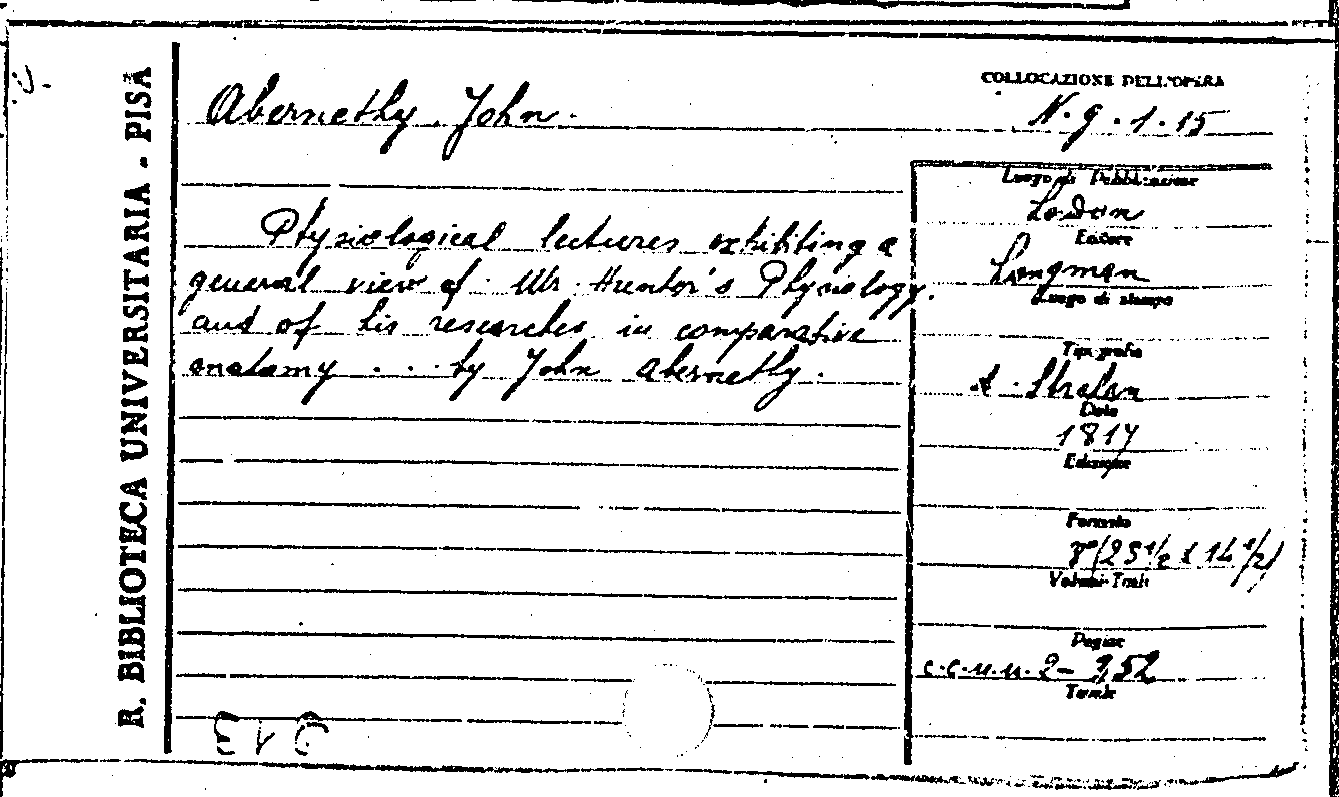 R. BIBLIOTECA UNIVERSITARIA - PISA
Abernethy, John.
COLLOCAZIONE DELL'OPERA
N. g. 1. 15
Physiological lectures exhibiting a
general view of Mr. Hunter's Physiology.
and of his researches in comparative
anatomy . . . by John Abernethy.
Luogo di Pubblicazione
London
Editore
Longman
Luogo di stampa
Tipografia
A. Strahan
Data
1817
Edizione
Formato
8°(23 1/2 x 14 1/2)
Volumi-Tomi
Pagine
c.c.n.n. 2 - 352
Tavole